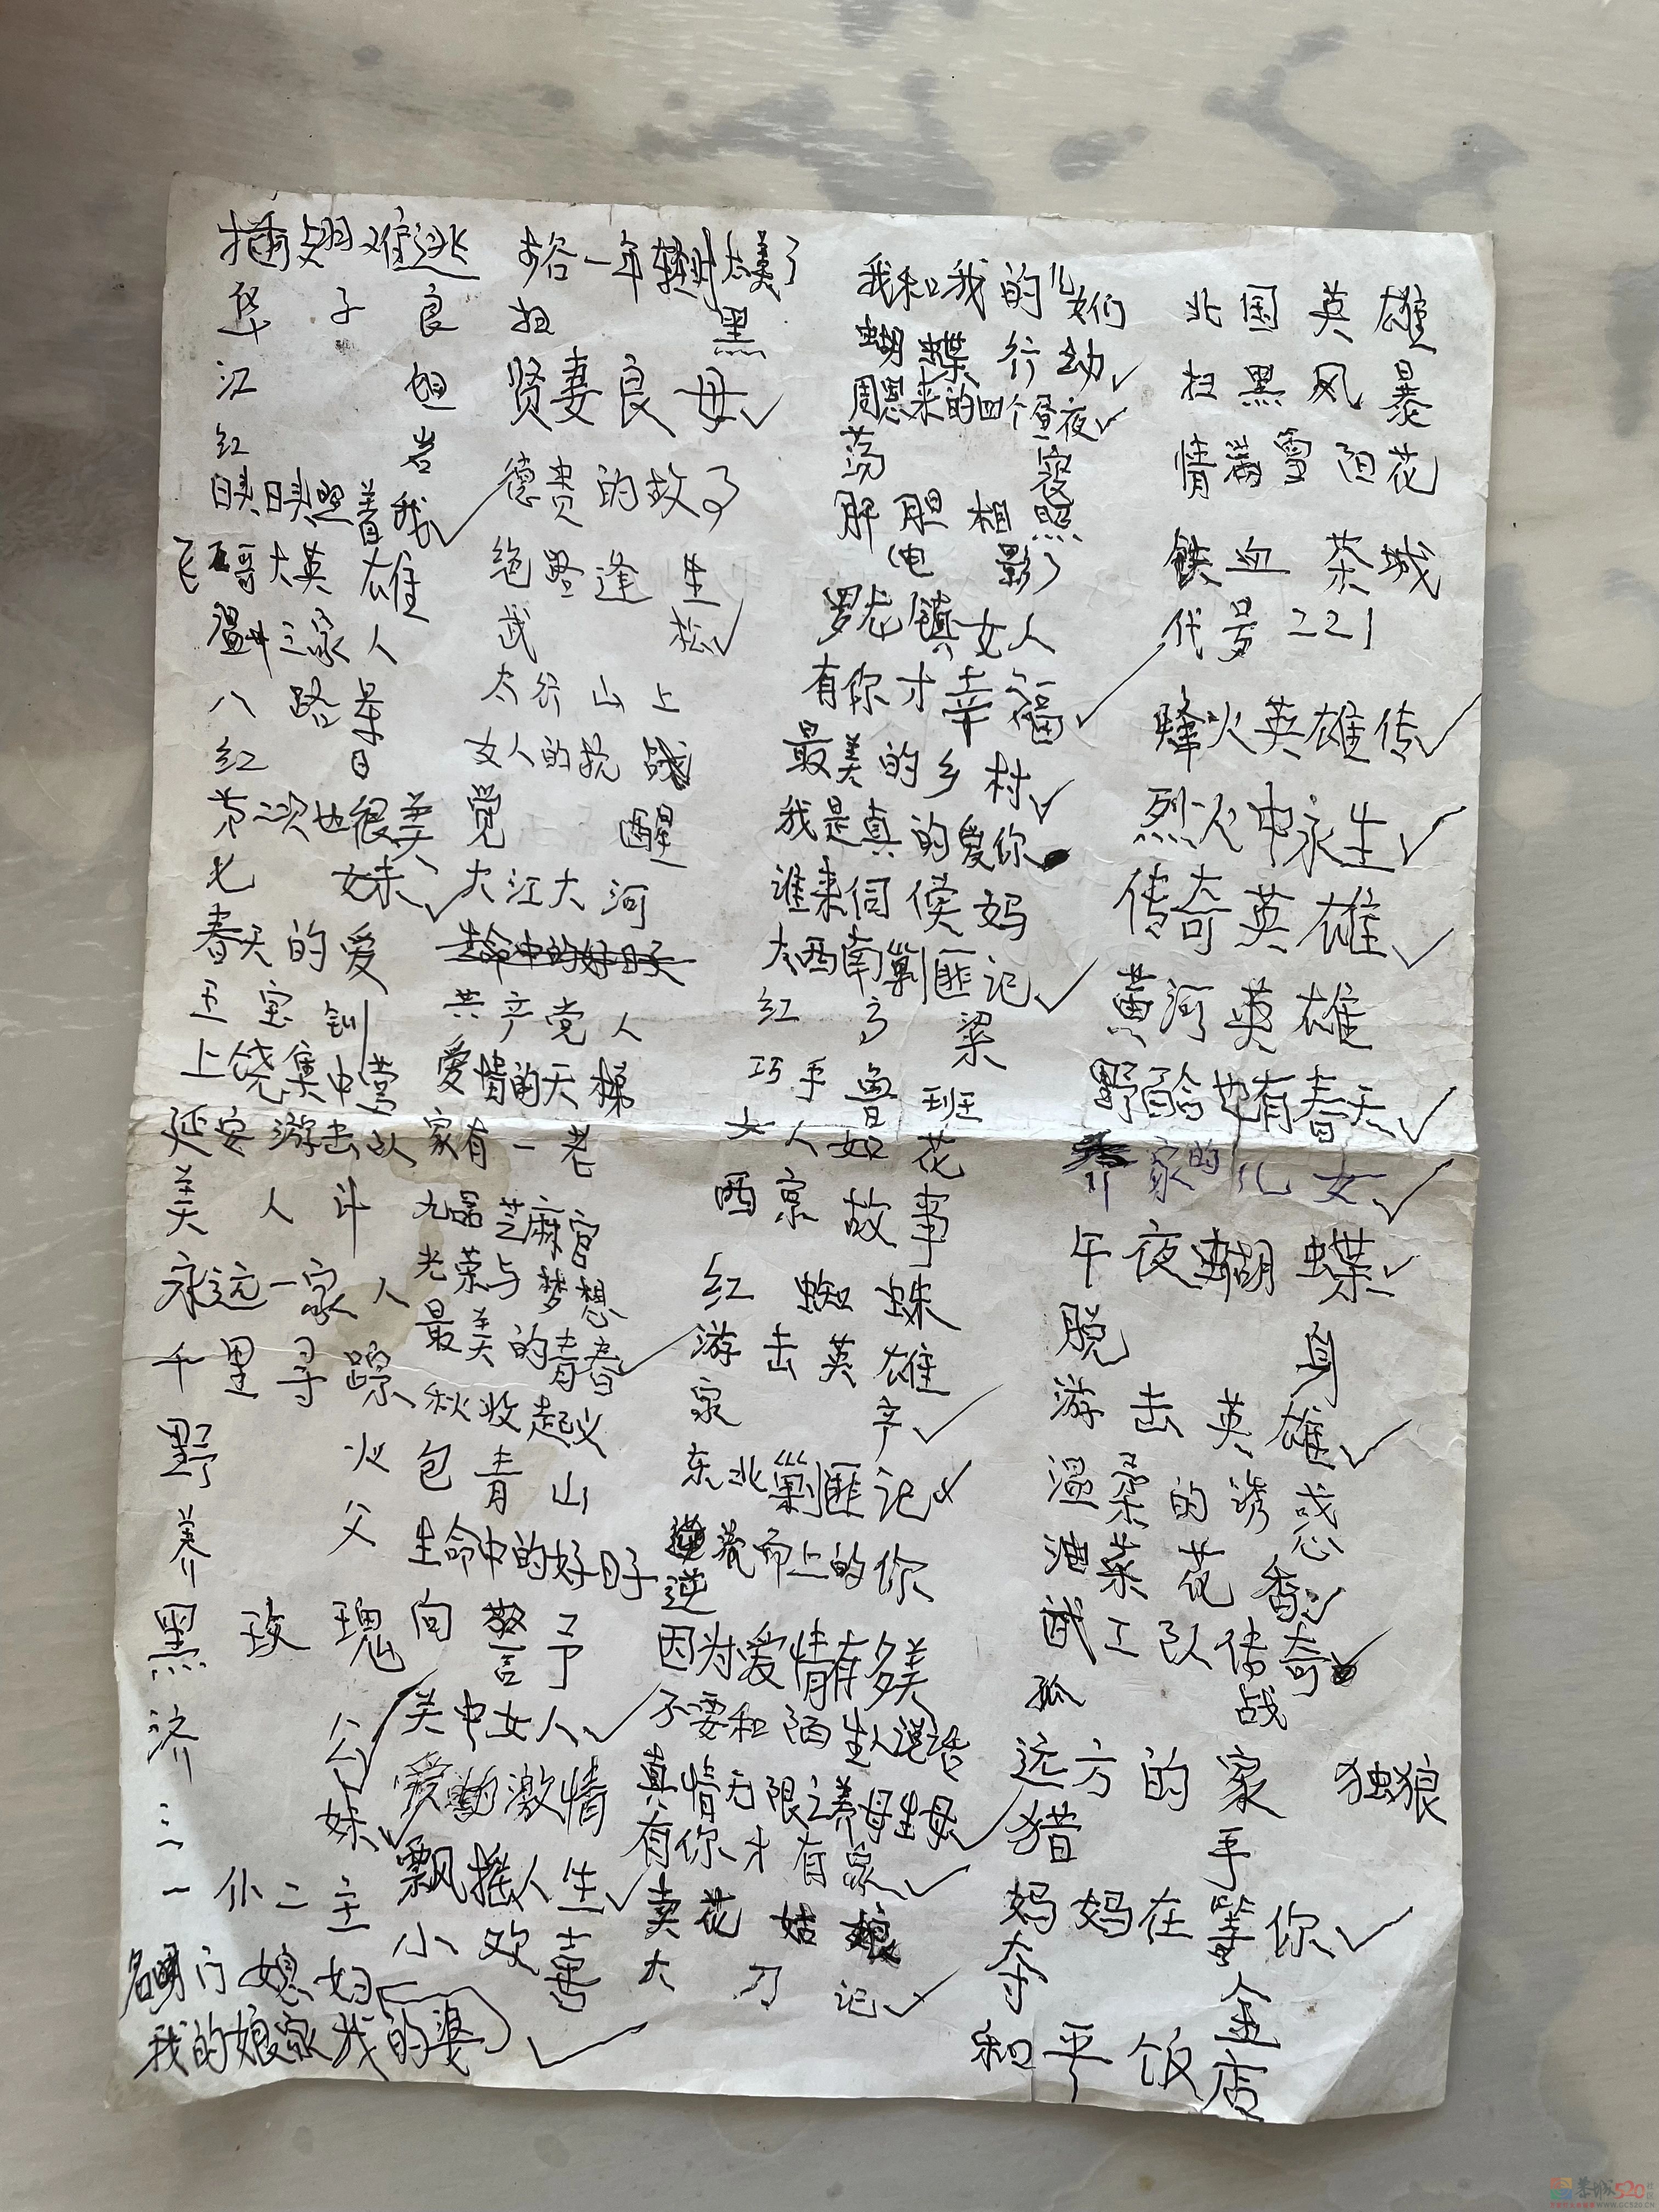 插翅难逃
华子良
江姐
红岩
映映照着我✓
飞哥大英雄
温州三家人
八路军
红日
第二次也很美
七妹✓
春天的爱
王宝钏
上饶集中营
延安游击队
美人斗
永远一家人
千里寻踪
野火
养父
黑玫瑰
济公✓
三妹✓
一仆二主
名门媳妇
我的娘家我的婆
哈一年轻时太美了
扫黑
贤妻良母✓
德贵的故了
绝路逢生
武松✓
太行山上
女人的抗战
觉醒
大江大河
生命中的好日子
共产党人
爱情的天梯
家有一老
九品芝麻官
光荣与梦想
最美的青春✓
秋收起义
包青山
生命中的好日子
向警予
关中女人✓
爱的激情
飘摇人生✓
小欢喜
我和我的儿女们
蝴蝶行动✓
周恩来的四个昼夜✓
荡寇
肝胆相照
电影
罗龙镇女人
有你才幸福✓
最美的乡村✓
我是真的爱你
谁来伺候妈
大西南剿匪记✓
红高粱
巧手鲁班
女人如花
西京故事
红蜘蛛
游击英雄
家产✓
东北剿匪记✓
逆流而上的你
逆
因为爱情有多美
不要和陌生人说话
真情无限之养母生母✓
有你才有家✓
卖花姑娘
大刀记✓
北国英雄
扫黑风暴
情满雪阳花
铁血茶城
代号221
烽火英雄传✓
烈火中永生✓
传奇英雄✓
黄河英雄
野百合也有春天✓
乔家的儿女✓
午夜蝴蝶✓
脱身
游击英雄✓
温柔的诱惑
油菜花香✓
武工队传奇✓
孤战
远方的家 独狼
猎手
妈妈在等你✓
夺金
和平饭店
恭城520社区
WWW.GC520.CN